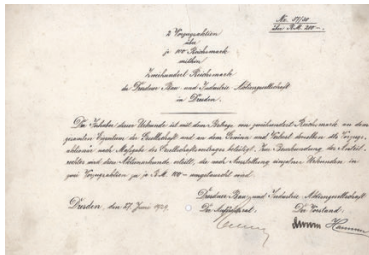 No. 
über R.M. 200.-
2 Vorzugsaktien
über
je 100 Reichsmark
mithin
Zweihundert Reichsmark
der Dresdner Bau- und Industrie Aktiengesellschaft
in Dresden.
Der Inhaber dieser Urkunde ist mit dem Betrage von zweihundert Reichsmark an dem
gesamten Eigentum der Gesellschaft und an dem Gewinn und Verlust derselben als Vorzugs-
aktionär nach Maßgabe des Gesellschaftsvertrages beteiligt. Zur Beurkundung der Anteil-
rechte wird diese Aktienurkunde erteilt, die nach Ausstellung einzelner Urkunden in
zwei Vorzugsaktien zu je R.M. 100.- umgetauscht wird.
Dresden, den 27. Juni 1929
Dresdner Bau- und Industrie Aktiengesellschaft
Der Aufsichtsrat. Der Vorstand.